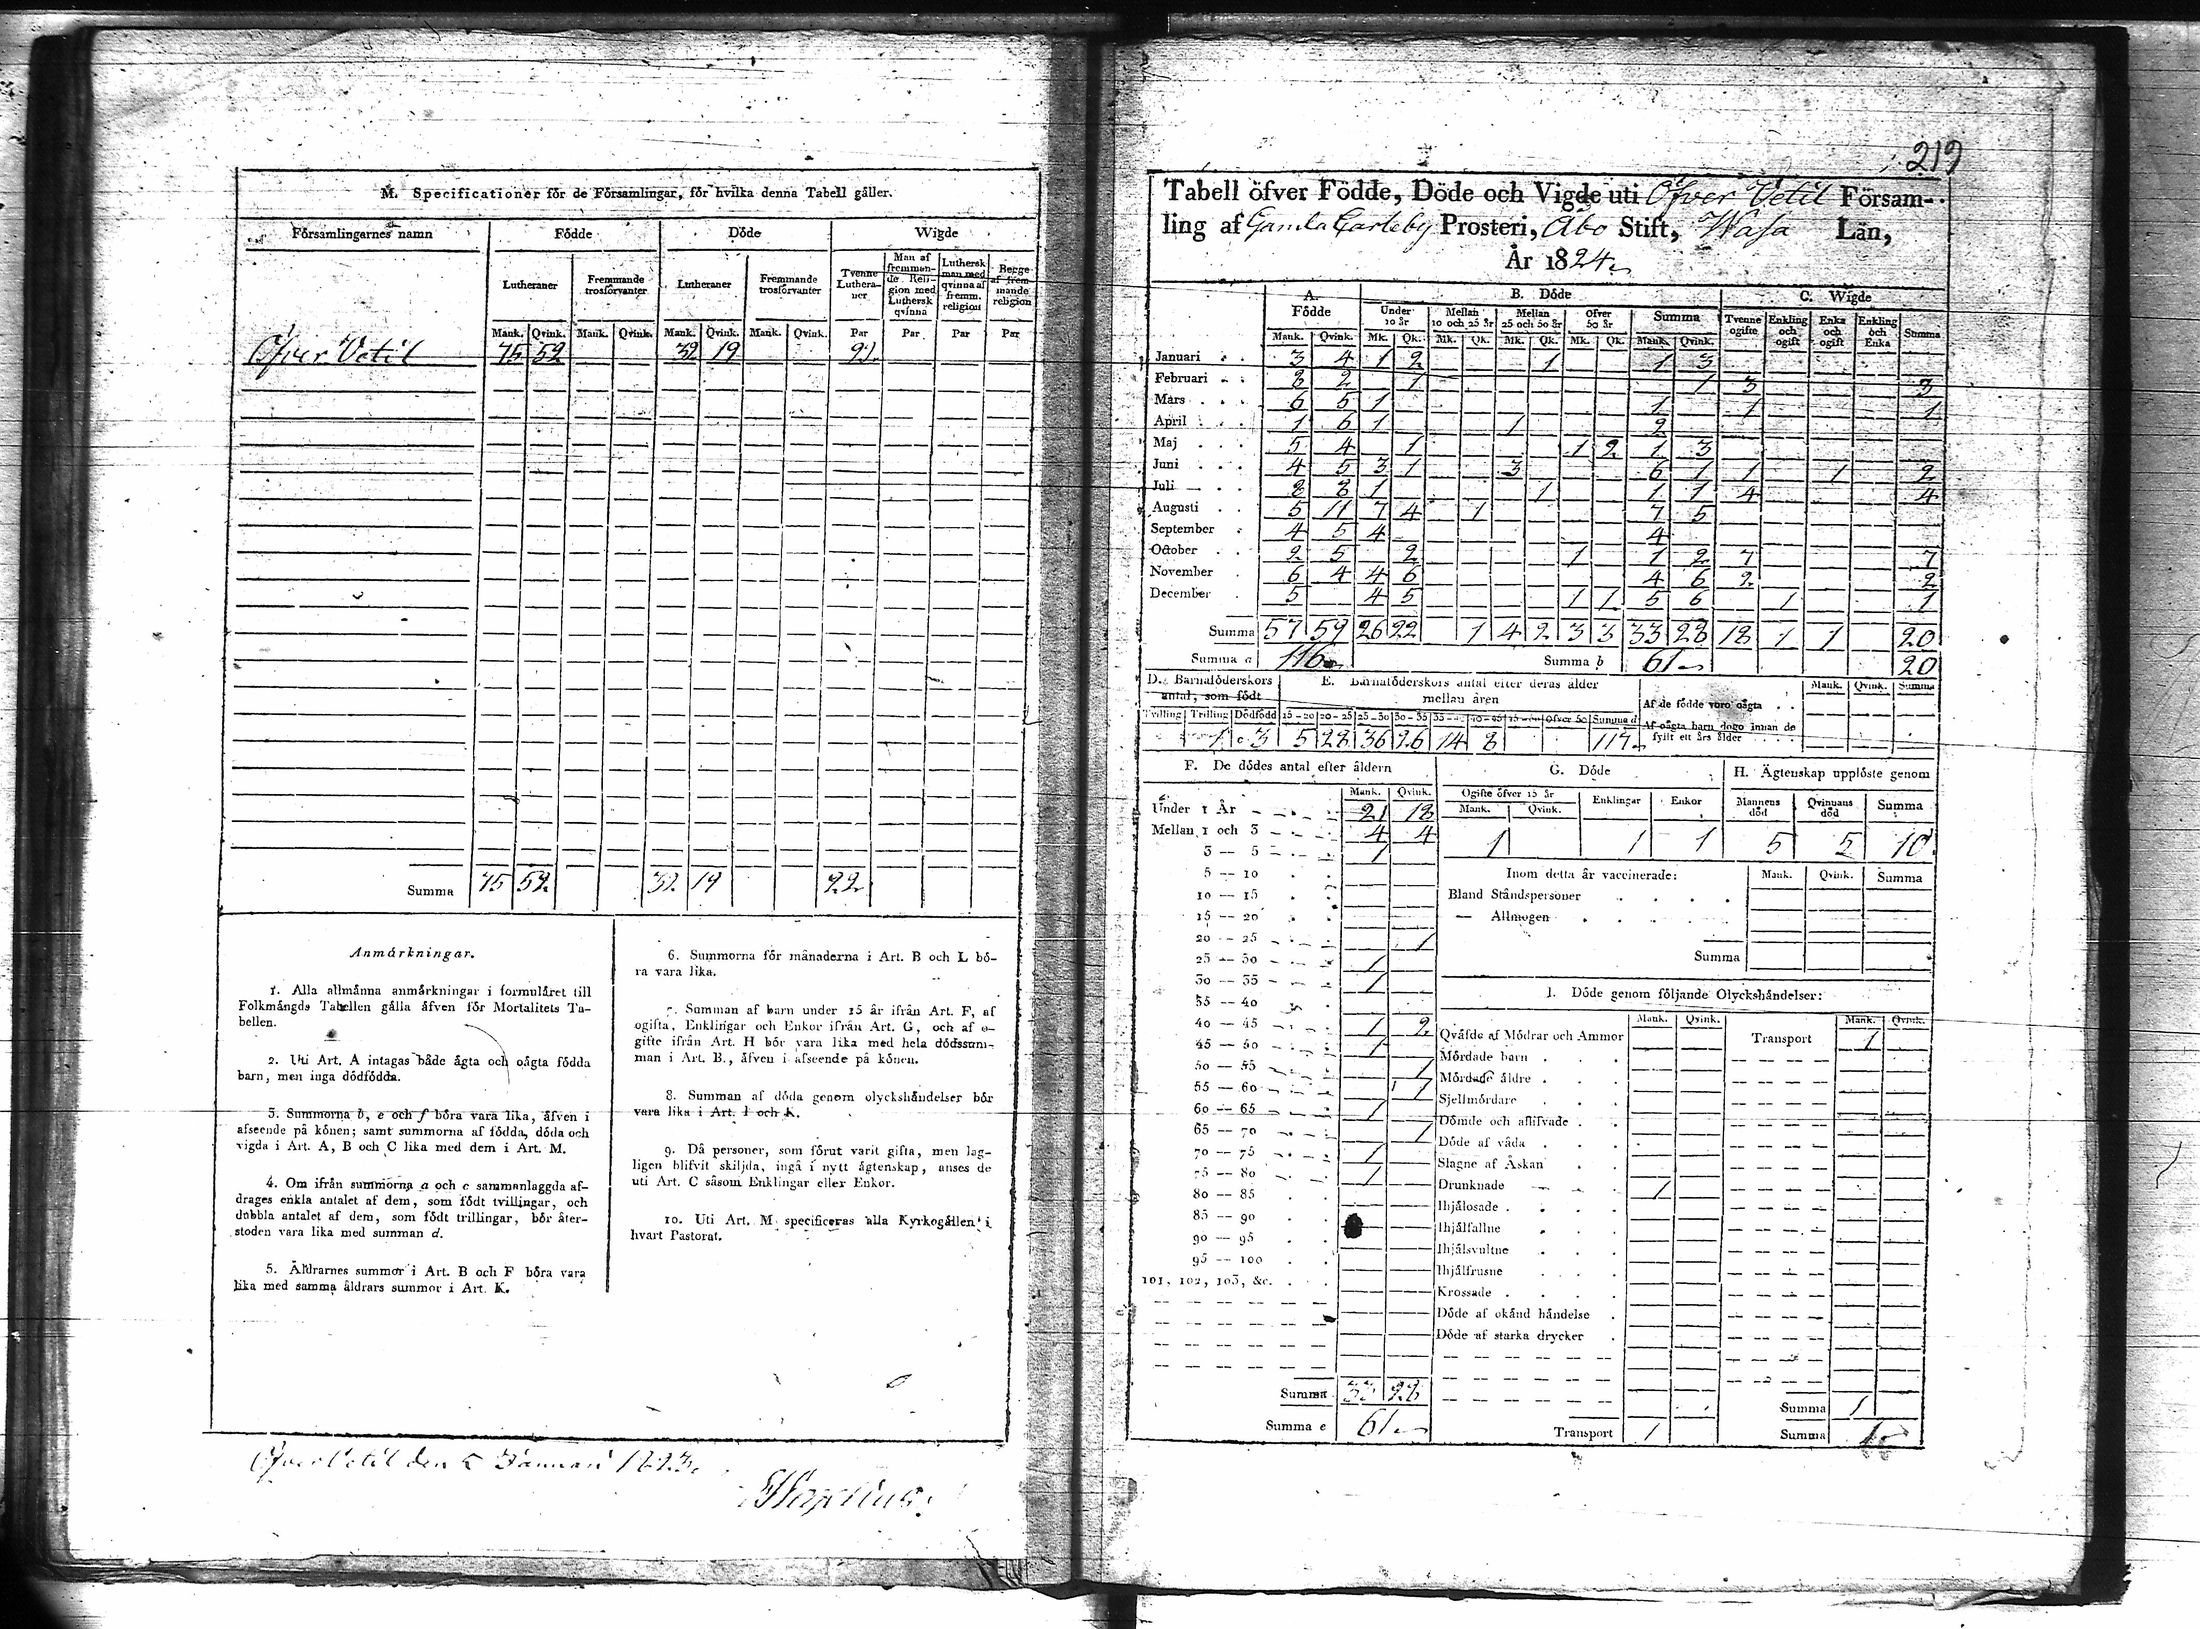 M. Specificationer för de Församlingar, för hvilka denna Tabell gäller.
Församlingarnes namn Födde Döde Wigde
Lutheraner Fremmande trosförvanter Lutheraner Fremmande trosförvanter Tvenne Lutheraner Man af fremmande Religion med Luthersk qvinna Luthersk man med qvinna af fremm. religion Begge af fremmande religion
Mank. Qvink. Mank. Qvink. Mank. Qvink. Mank. Qvink. Par Par Par Par
Öfver Vetil 75 52 32 19 22
Summa 75 52 32 19 22
Anmärkningar.
1. Alla allmänna anmärkningar i formuläret till
Folkmängds Tabellen gälla äfven för Mortalitets Ta-
bellen.
2. Uti Art. A intagas både ägta och oägta födda
barn, men inga dödfödda.
3. Summorna b, e och f böra vara lika, äfven i
afseende på könen; samt summorna af födda, döda och
vigda i Art. A, B och C lika med dem i Art. M.
4. Om ifrån summorna a och c sammanlaggda af-
drages enkla antalet af dem, som födt tvillingar, och
dubbla antalet af dem, som födt trillingar, bör åter-
stoden vara lika med summan d.
5. Åldrarnes summor i Art. B och F böra vara
lika med samma åldrars summor i Art. K.
6. Summorna för månaderna i Art. B och L bö-
ra vara lika.
7. Summan af barn under 15 år ifrån Art. F, af
ogifta, Enklingar och Enkor ifrån Art. G, och af o-
gifte ifrån Art. H bör vara lika med hela dödssum-
man i Art. B., äfven i afseende på könen.
8. Summan af döda genom olyckshändelser bör
vara lika i Art. I och K.
9. Då personer, som förut varit gifta, men lag-
ligen blifvit skiljda, ingå i nytt ägtenskap, anses de
uti Art. C såsom Enklingar eller Enkor.
10. Uti Art. M specificeras alla Kyrkogällen i
hvart Pastorat.
Öfver Vetil den 5 Januari 1823.
219
Tabell öfver Födde, Döde och Vigde uti Öfver Vetil Försam-
ling af Gamla Carleby Prosteri, Åbo Stift, Wasa Län,
År 1824
A. Födde B. Döde C. Wigde
Under 10 år Mellan 10 och 25 år Mellan 25 och 50 år Öfver 50 år Summa Tvenne ogifte Enkling och ogift Enka och ogift Enkling och Enka Summa
Mank. Qvink. Mk. Qk. Mk. Qk. Mk. Qk. Mk. Qk. Mank. Qvink.
Januari 3 4 1 2 1 1 3
Februari 8 2 1 1 3 3
Mars 6 5 1 1 1 1
April 1 6 1 1 2
Maj 5 4 1 1 2 1 3
Juni 4 5 3 1 3 6 1 1 1 2
Juli 8 8 1 1 1 1 4 4
Augusti 5 11 7 4 1 7 5
September 4 5 4 4
October 2 5 2 1 1 2 7 7
November 6 4 4 6 4 6 2 2
December 5 4 5 1 1 5 6 1 1
Summa 57 59 26 22 1 4 2 3 3 33 28 18 1 1 20
Summa a 116 Summa b 61 20
D. Barnaföderskors antal, som födt E. Barnaföderskors antal efter deras ålder mellan åren Mank. Qvink. Summa
Af de födde voro oägta
Af oägta barn dogo innan de fyllt ett års ålder
Tvilling Trilling Dödfödd 15-20 20-25 25-30 30-35 35-40 40-45 45-50 öfver 50 Summa d
1 c 3 5 28 36 26 14 8 117
F. De dödes antal efter åldern G. Döde H. Ägtenskap upplöste genom
Mank. Qvink. Ogifte öfver 15 år Enklingar Enkor Mannens död Qvinnans död Summa
Mank. Qvink.
1 1 1 5 5 10
Under 1 År 21 18
Mellan 1 och 3 4 4
3 — 5 1
5 — 10
10 — 15
15 — 20
20 — 25 1
25 — 30 1
30 — 35 1
35 — 40
40 — 45 1 2
45 — 50 1
50 — 55 1
55 — 60 1
60 — 65 1
65 — 70 1
70 — 75 1
75 — 80 1
80 — 85
85 — 90
90 — 95
95 — 100
101, 102, 103, &c.
Summa 33 28
Summa e 61
Inom detta år vaccinerade: Mank. Qvink. Summa
Bland Ståndspersoner
— Allmogen
Summa
I. Döde genom följande Olyckshändelser:
Mank. Qvink. Mank. Qvink.
Qväfde af Mödrar och Ammor Transport 1
Mördade barn
Mördade äldre
Sjelfmördare
Dömde och aflifvade
Döde af våda
Slagne af Åskan
Drunknade 1
Ihjälosade
Ihjälfallne
Ihjälsvultne
Ihjälfrusne
Krossade
Döde af okänd händelse
Döde af starka drycker
Summa 1
Transport 1 Summa 1